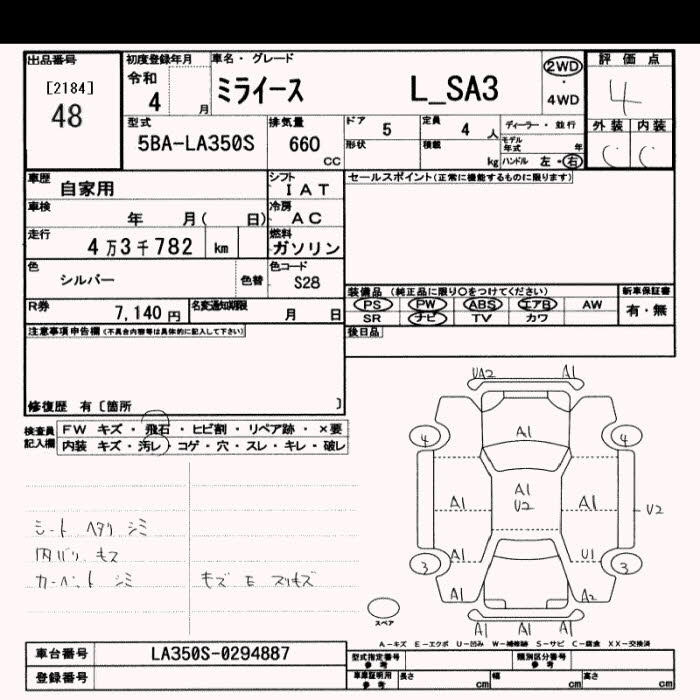 出品番号 初度登録年月 車名・グレード 評価点
[2184] 令和 ミライース L_SA3 2WD ・ 4WD 4
48 4 月
型式 排気量 ドア 5 定員 4 人 ディーラー・並行 外装 内装
5BA-LA350S 660 CC 形状 積載 kg モデル年式 年 C C
ハンドル 左・右
車歴 自家用 シフト IAT セールスポイント(正常に機能するものに限ります)
車検 年 月( 日) 冷房 AC
走行 4万3千782 km 燃料 ガソリン
色 シルバー 色替 色コード S28
装備品 (純正品に限り〇をつけてください) 新車保証書
R券 7,140円 名変通知期限 月 日 PS PW ABS エアB AW 有・無
SR ナビ TV カワ
注意事項申告欄(不具合内容等は具体的に記入して下さい) 後日品
修復歴 有〔箇所 〕
検査員記入欄 FW キズ・飛石・ヒビ割・リペア跡・×要
内装 キズ・汚レ・コゲ・穴・スレ・キレ・破レ
UA2 A1
4 A1 4
A1 A1 U2 A1 U2
A1 U1
3 3
A1 A2
A1 A1 A1
シート ヘタリ シミ
内バリ キズ
カーペット シミ キズ E スリキズ
スペア
A-キズ E-エクボ U-凹み W-補修跡 S-サビ C-腐食 XX-交換済
車台番号 LA350S-0294887 型式指定番号 参考 類別区分番号 参考
登録番号 車庫証明用 参考 長さ cm 幅 cm 高さ cm